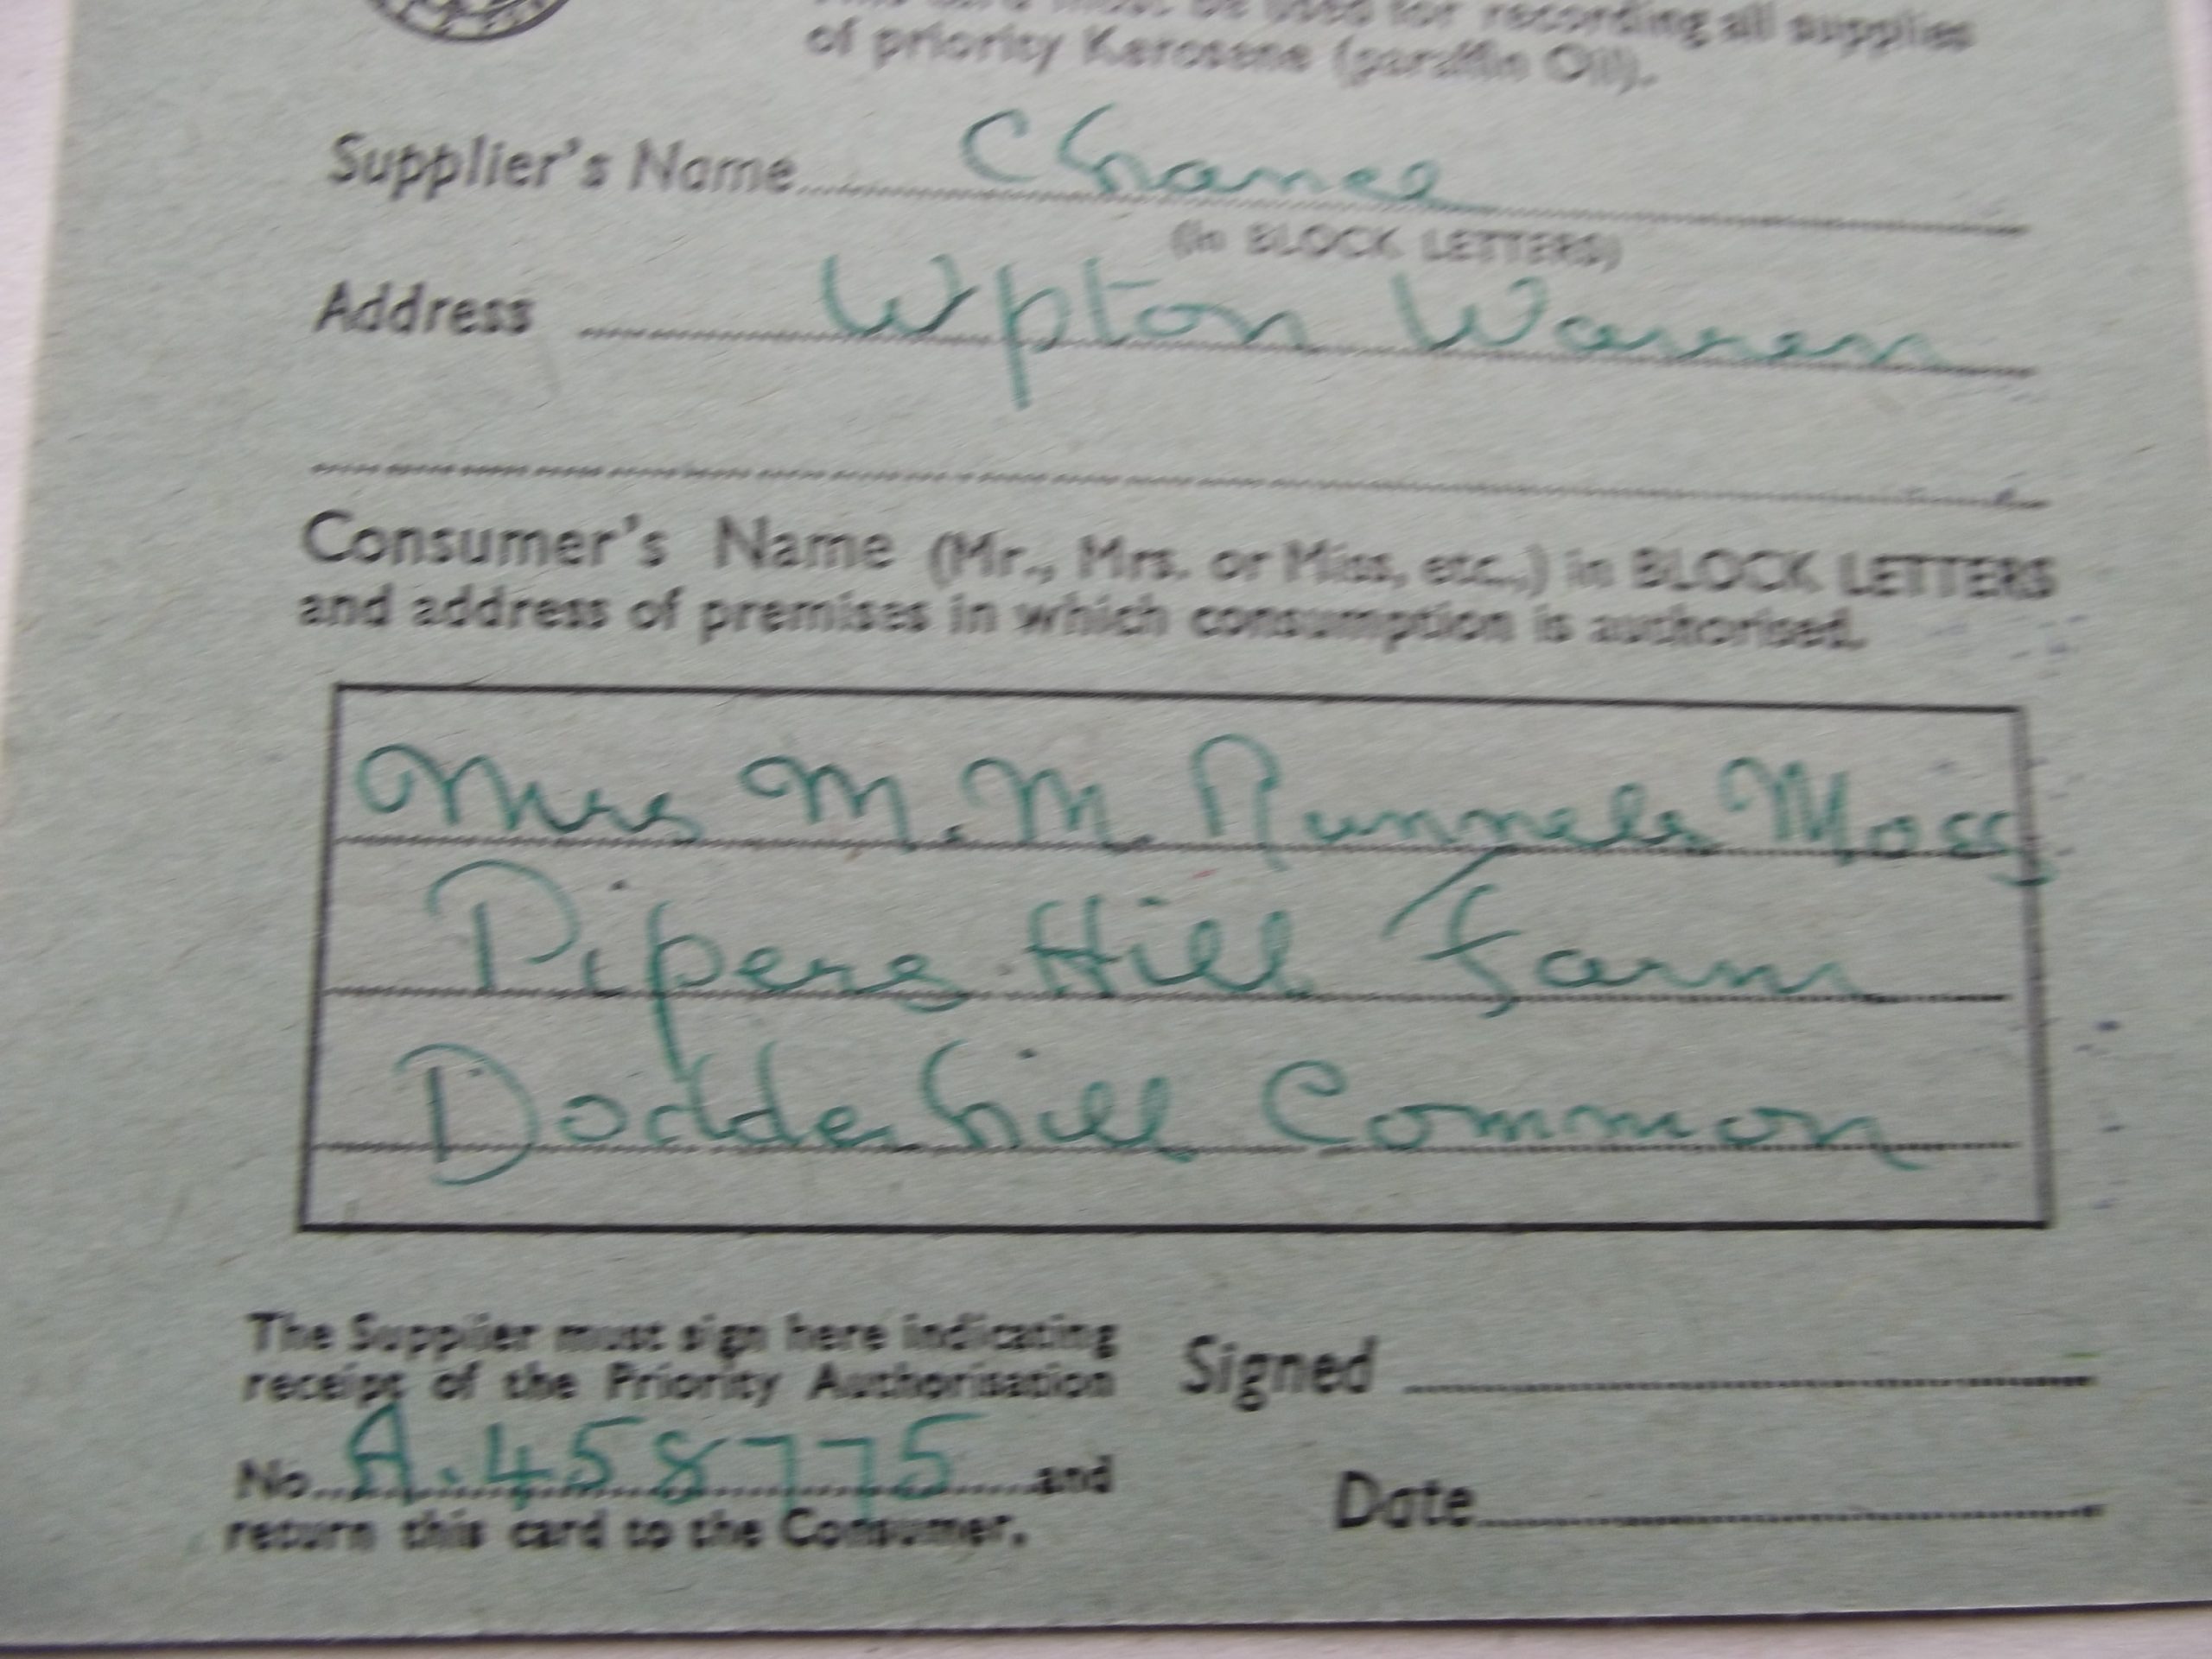 This card must be used for recording all supplies
of priority Kerosene (paraffin Oil).
Supplier's Name Chance
(in BLOCK LETTERS)
Address Upton Warren
Consumer's Name (Mr., Mrs. or Miss, etc.,) in BLOCK LETTERS
and address of premises in which consumption is authorised.
Mrs M. M. Runnels Moss
Pipers Hill Farm
Dodderhill Common
The Supplier must sign here indicating
receipt of the Priority Authorisation
Signed
No. A.458775 and
return this card to the Consumer.
Date